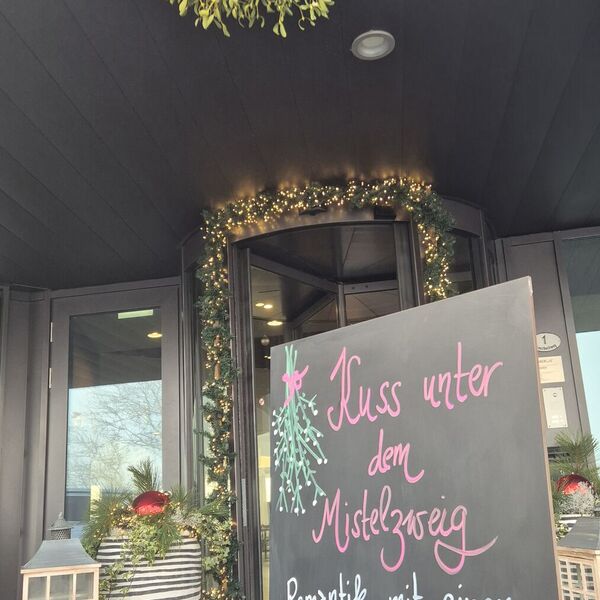 Kuss unter
dem
Mistelzweig
Romantik mit einem
1